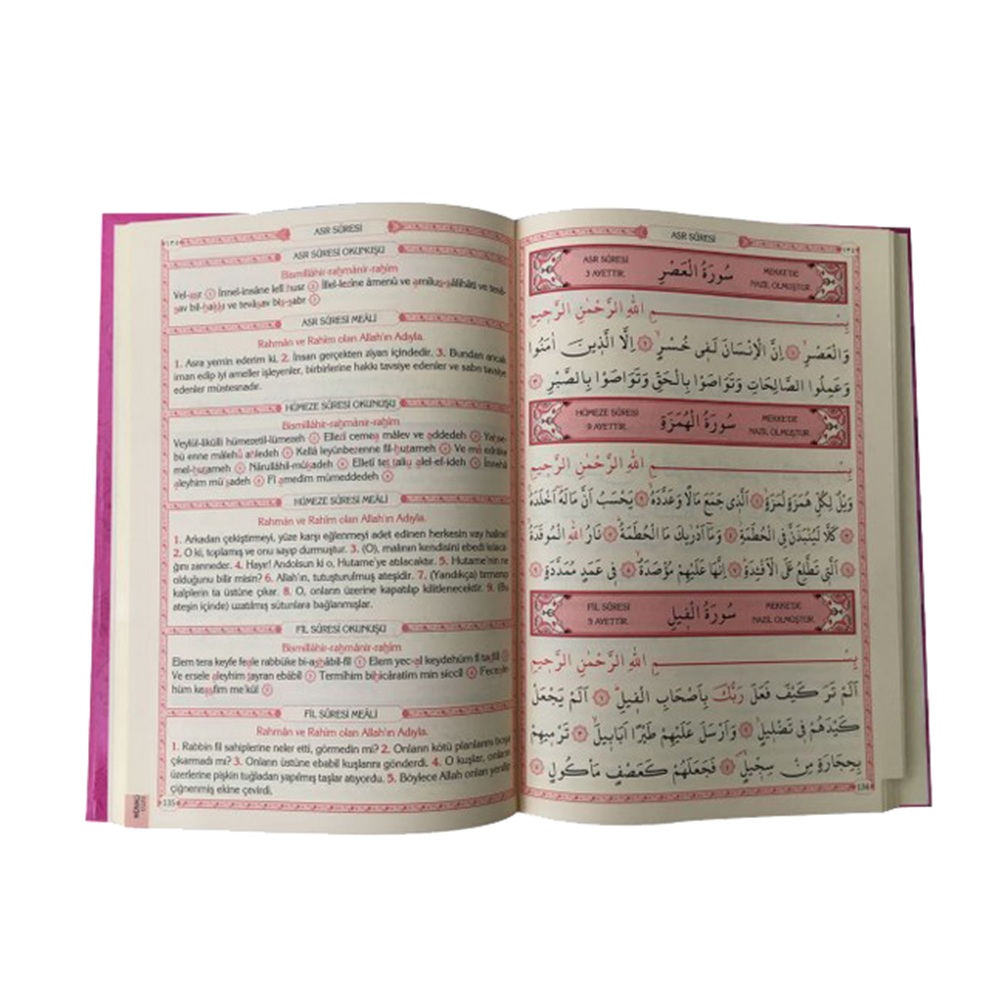 ASR SÛRESİ
ASR SÛRESİ OKUNUŞU
Bismillâhir-raḥmânir-raḥîm
Vel-aṣr ① İnnel-insâne lefî ḫusr ② İllel-leẕîne âmenû ve ạmiluṣ-ṣâliḥâti ve tevâ-
ṣav bil-ḥaḳḳı ve tevâṣav biṣ-ṣabr ③
ASR SÛRESİ MEÂLİ
Rahmân ve Rahîm olan Allah'ın Adıyla.
1. Asra yemin ederim ki. 2. İnsan gerçekten ziyan içindedir. 3. Bundan ancak
iman edip iyi ameller işleyenler, birbirlerine hakkı tavsiye edenler ve sabrı tavsiye
edenler müstesnadır.
HÜMEZE SÛRESİ OKUNUŞU
Bismillâhir-raḥmânir-raḥîm
Veylül-likülli hümezetil-lümezeh ① Elleẕî cemeạ mâlev ve ạddedeh ② Yaḥse-
bü enne mâlehû aḫledeh ③ Kellâ leyünbeẕenne fil-ḥuṭameh ④ Ve mâ edrâke
mel-ḥuṭameh ⑤ Nârullâhil-mûḳadeh ⑥ Elletî teṭṭaliu ạlel-ef-ideh ⑦ İnnehâ
ạleyhim mü'ṣadeh ⑧ Fî ạmedim mümeddedeh ⑨
HÜMEZE SÛRESİ MEÂLİ
Rahmân ve Rahîm olan Allah'ın Adıyla.
1. Arkadan çekiştirmeyi, yüze karşı eğlenmeyi adet edinen herkesin vay haline!
2. O ki, toplamış ve onu sayıp durmuştur. 3. (O), malının kendisini ebedî kılaca-
ğını zanneder. 4. Hayır! Andolsun ki o, Hutame'ye atılacaktır. 5. Hutame'nin ne
olduğunu bilir misin? 6. Allah'ın, tutuşturulmuş ateşidir. 7. (Yandıkça) tırmanıp
kalplerin ta üstüne çıkar. 8. O, onların üzerine kapatılıp kilitlenecektir. 9. (Bu
ateşin içinde) uzatılmış sütunlara bağlanmışlar.
FÎL SÛRESİ OKUNUŞU
Bismillâhir-raḥmânir-raḥîm
Elem tera keyfe feạle rabbüke bi-aṣḥâbil-fîl ① Elem yec-ạl keydehüm fî taḍlîl ②
Ve ersele ạleyhim ṭayran ebâbîl ③ Termîhim biḥicâratim min siccîl ④ Feceạle-
hüm keạṣfim me'kûl ⑤
FÎL SÛRESİ MEÂLİ
Rahmân ve Rahîm olan Allah'ın Adıyla.
1. Rabbin fil sahiplerine neler etti, görmedin mi? 2. Onların kötü planlarını boşa
çıkarmadı mı? 3. Onların üstüne ebabil kuşlarını gönderdi. 4. O kuşlar, onların
üzerlerine pişkin tuğladan yapılmış taşlar atıyordu. 5. Böylece Allah onları yenilip
çiğnenmiş ekine çevirdi.
135
ASR SÛRESİ
ASR SÛRESİ سُورَةُ الْعَصْرِ MEKKE'DE
3 AYETTİR. NAZİL OLMUŞTUR.
بِسْمِ اللهِ الرَّحْمٰنِ الرَّحِيمِ
وَالْعَصْرِۙ ﴿١﴾ اِنَّ الْاِنْسَانَ لَفٖى خُسْرٍۙ ﴿٢﴾ اِلَّا الَّذٖينَ اٰمَنُوا
وَعَمِلُوا الصَّالِحَاتِ وَتَوَاصَوْا بِالْحَقِّ وَتَوَاصَوْا بِالصَّبْرِ ﴿٣﴾
HÜMEZE SÛRESİ سُورَةُ الْهُمَزَةِ MEKKE'DE
9 AYETTİR. NAZİL OLMUŞTUR.
بِسْمِ اللهِ الرَّحْمٰنِ الرَّحِيمِ
وَيْلٌ لِكُلِّ هُمَزَةٍ لُمَزَةٍۙ ﴿١﴾ اَلَّذٖى جَمَعَ مَالًا وَعَدَّدَهُۙ ﴿٢﴾ يَحْسَبُ اَنَّ مَالَهُٓ اَخْلَدَهُۚ
﴿٣﴾ كَلَّا لَيُنْبَذَنَّ فِى الْحُطَمَةِۘ ﴿٤﴾ وَمَٓا اَدْرٰيكَ مَا الْحُطَمَةُۜ ﴿٥﴾ نَارُ اللهِ الْمُوقَدَةُۙ
﴿٦﴾ اَلَّتٖى تَطَّلِعُ عَلَى الْاَفْـِٔدَةِۜ ﴿٧﴾ اِنَّهَا عَلَيْهِمْ مُؤْصَدَةٌۙ ﴿٨﴾ فٖى عَمَدٍ مُمَدَّدَةٍ ﴿٩﴾
FÎL SÛRESİ سُورَةُ الْفٖيلِ MEKKE'DE
5 AYETTİR. NAZİL OLMUŞTUR.
بِسْمِ اللهِ الرَّحْمٰنِ الرَّحِيمِ
اَلَمْ تَرَ كَيْفَ فَعَلَ رَبُّكَ بِاَصْحَابِ الْفٖيلِۜ ﴿١﴾ اَلَمْ يَجْعَلْ
كَيْدَهُمْ فٖى تَضْلٖيلٍۙ ﴿٢﴾ وَاَرْسَلَ عَلَيْهِمْ طَيْرًا اَبَابٖيلَۙ ﴿٣﴾ تَرْمٖيهِمْ
بِحِجَارَةٍ مِنْ سِجّٖيلٍۙ ﴿٤﴾ فَجَعَلَهُمْ كَعَصْفٍ مَأْكُولٍ ﴿٥﴾
134